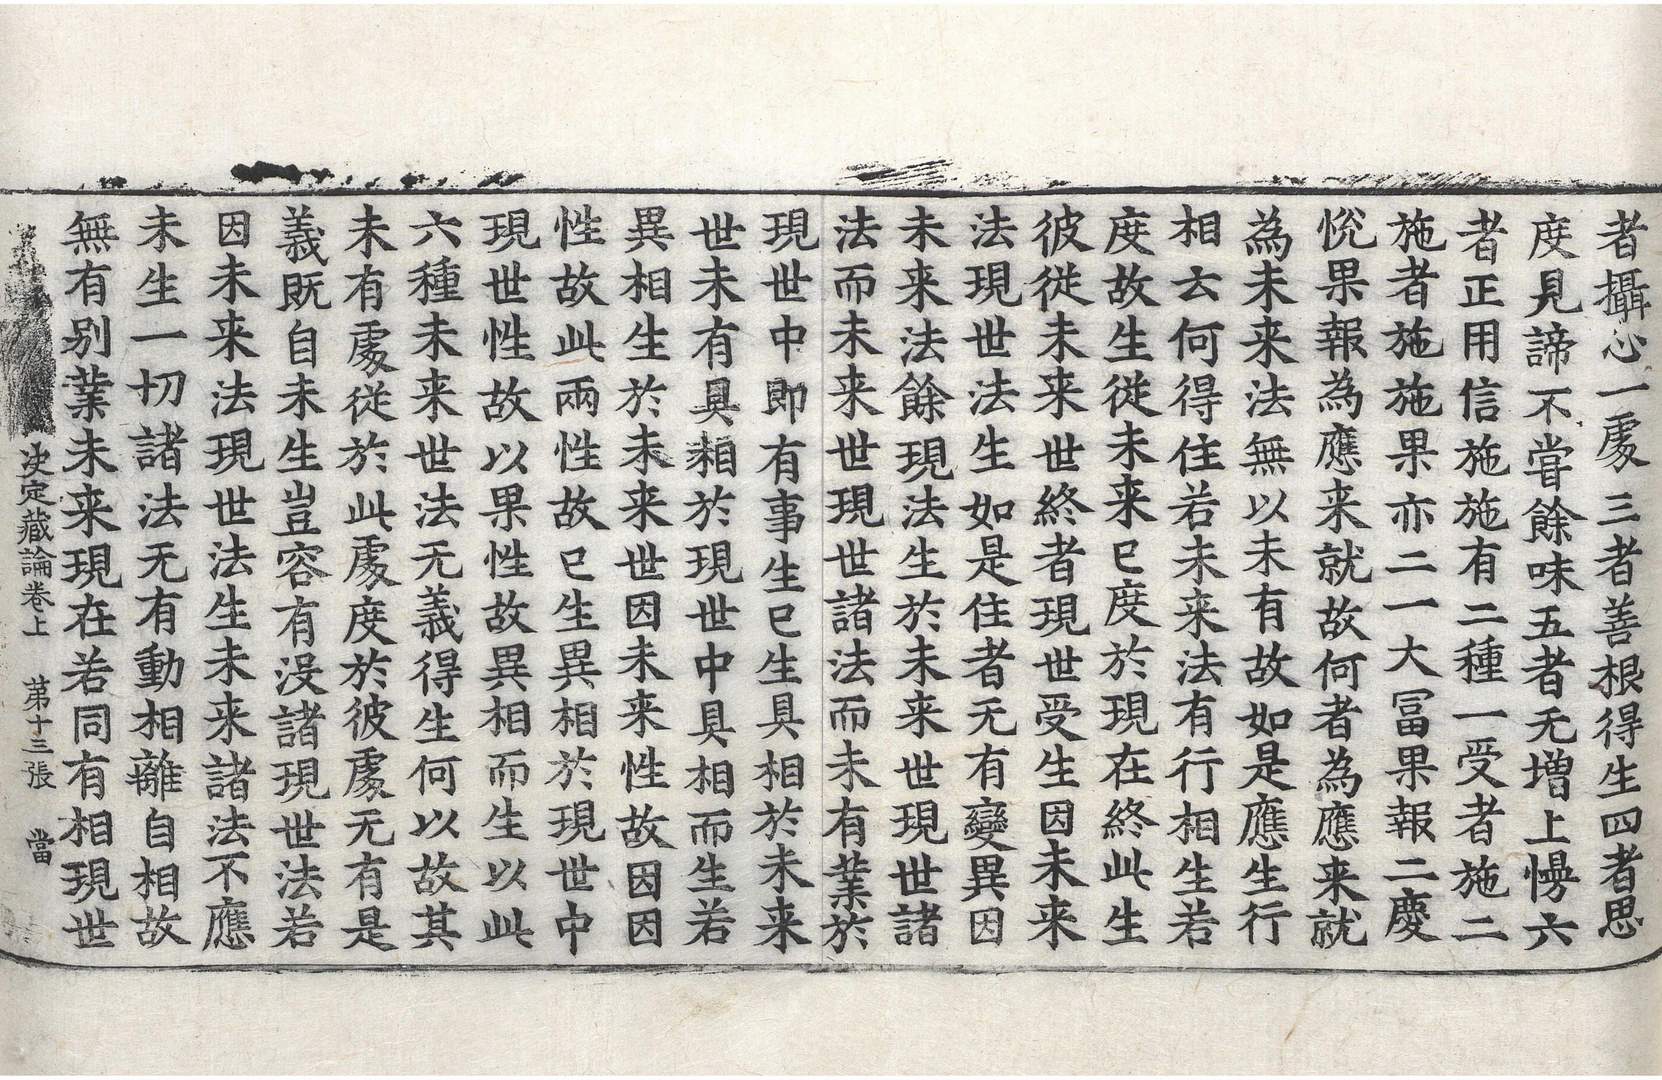 者攝心一處三者善根得生四者思
度見諦不甞餘味五者无增上慢六
者正用信施施有二種一受者施二
施者施施果亦二一大冨果報二慶
悅果報為應来就故何者為應来就
為未来法無以未有故如是應生行
相云何得住若未来法有行相生若
度故生從未来已度於現在終此生
彼從未来世終者現世受生因未来
法現世法生如是住者无有變異因
未来法餘現法生於未来世現世諸
法而未来世現世諸法而未有業於
現世中即有事生已生具相於未来
世未有具相於現世中具相而生若
異相生於未来世因未来性故因因
性故此兩性故已生異相於現世中
現世性故以果性故異相而生以此
六種未来世法无義得生何以故其
未有處從於此處度於彼處无有是
義既自未生豈容有没諸現世法若
因未来法現世法生未来諸法不應
未生一切諸法无有動相離自相故
無有别業未来現在若同有相現世
决定藏論卷上 第十三張 當